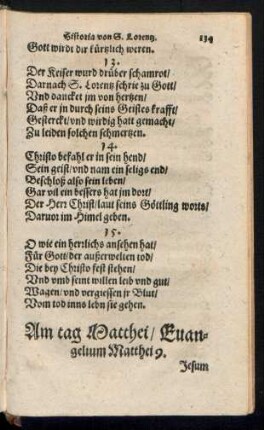 Historia von S. Lorentz. 134
Gott wirdt dir kürtzlich weren.
13.
Der Keiser wurd drüber schamrot/
Darnach S. Lorentz schrie zu Gott/
Vnd dancket jm von hertzen/
Daß er in durch seins Geistes krafft/
Gesterckt/vnd wirdig hatt gemacht/
Zu leiden solchen schmertzen.
14.
Christo befahl er in sein hend/
Sein geist/vnd nam ein seligs end/
Beschloß also sein leben/
Gar vil ein bessers hat jm dort/
Der Herr Christ/laut seins Göttling worts/
Daruor im Himel geben.
15.
O wie ein herrlichs ansehen hat/
Für Gott/der außerwelten tod/
Die bey Christo fest stehen/
Vnd vmb seint willen leib vnd gut/
Wagen/vnd vergiessen jr Blut/
Vom tod inns lebn sie gehen.
Am tag Matthei/Euan-
gelium Matthei 9.
Jesum